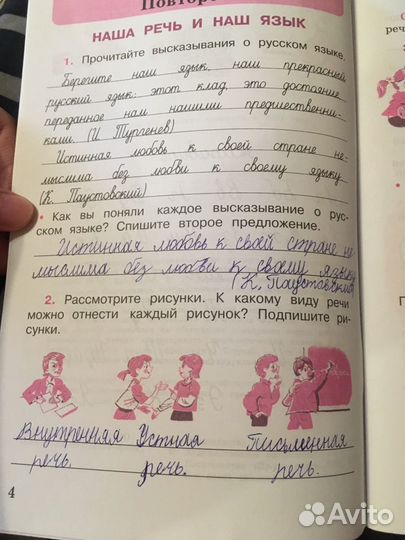 Повторе
НАША РЕЧЬ И НАШ ЯЗЫК
1. Прочитайте высказывания о русском языке.
Берегите наш язык, наш прекрасный
русский язык: этот клад, это достояние,
переданное нам нашими предшественни-
ками. (И. Тургенев)
Истинная любовь к своей стране не-
мыслима без любви к своему языку.
(К. Паустовский)
• Как вы поняли каждое высказывание о рус-
ском языке? Спишите второе предложение.
Истинная любовь к своей стране не
мыслима без любви к своему языку
(К. Паустовский)
2. Рассмотрите рисунки. К какому виду речи
можно отнести каждый рисунок? Подпишите ри-
сунки.
Внутренняя Устная Письменная
речь. речь. речь.
4
Avito